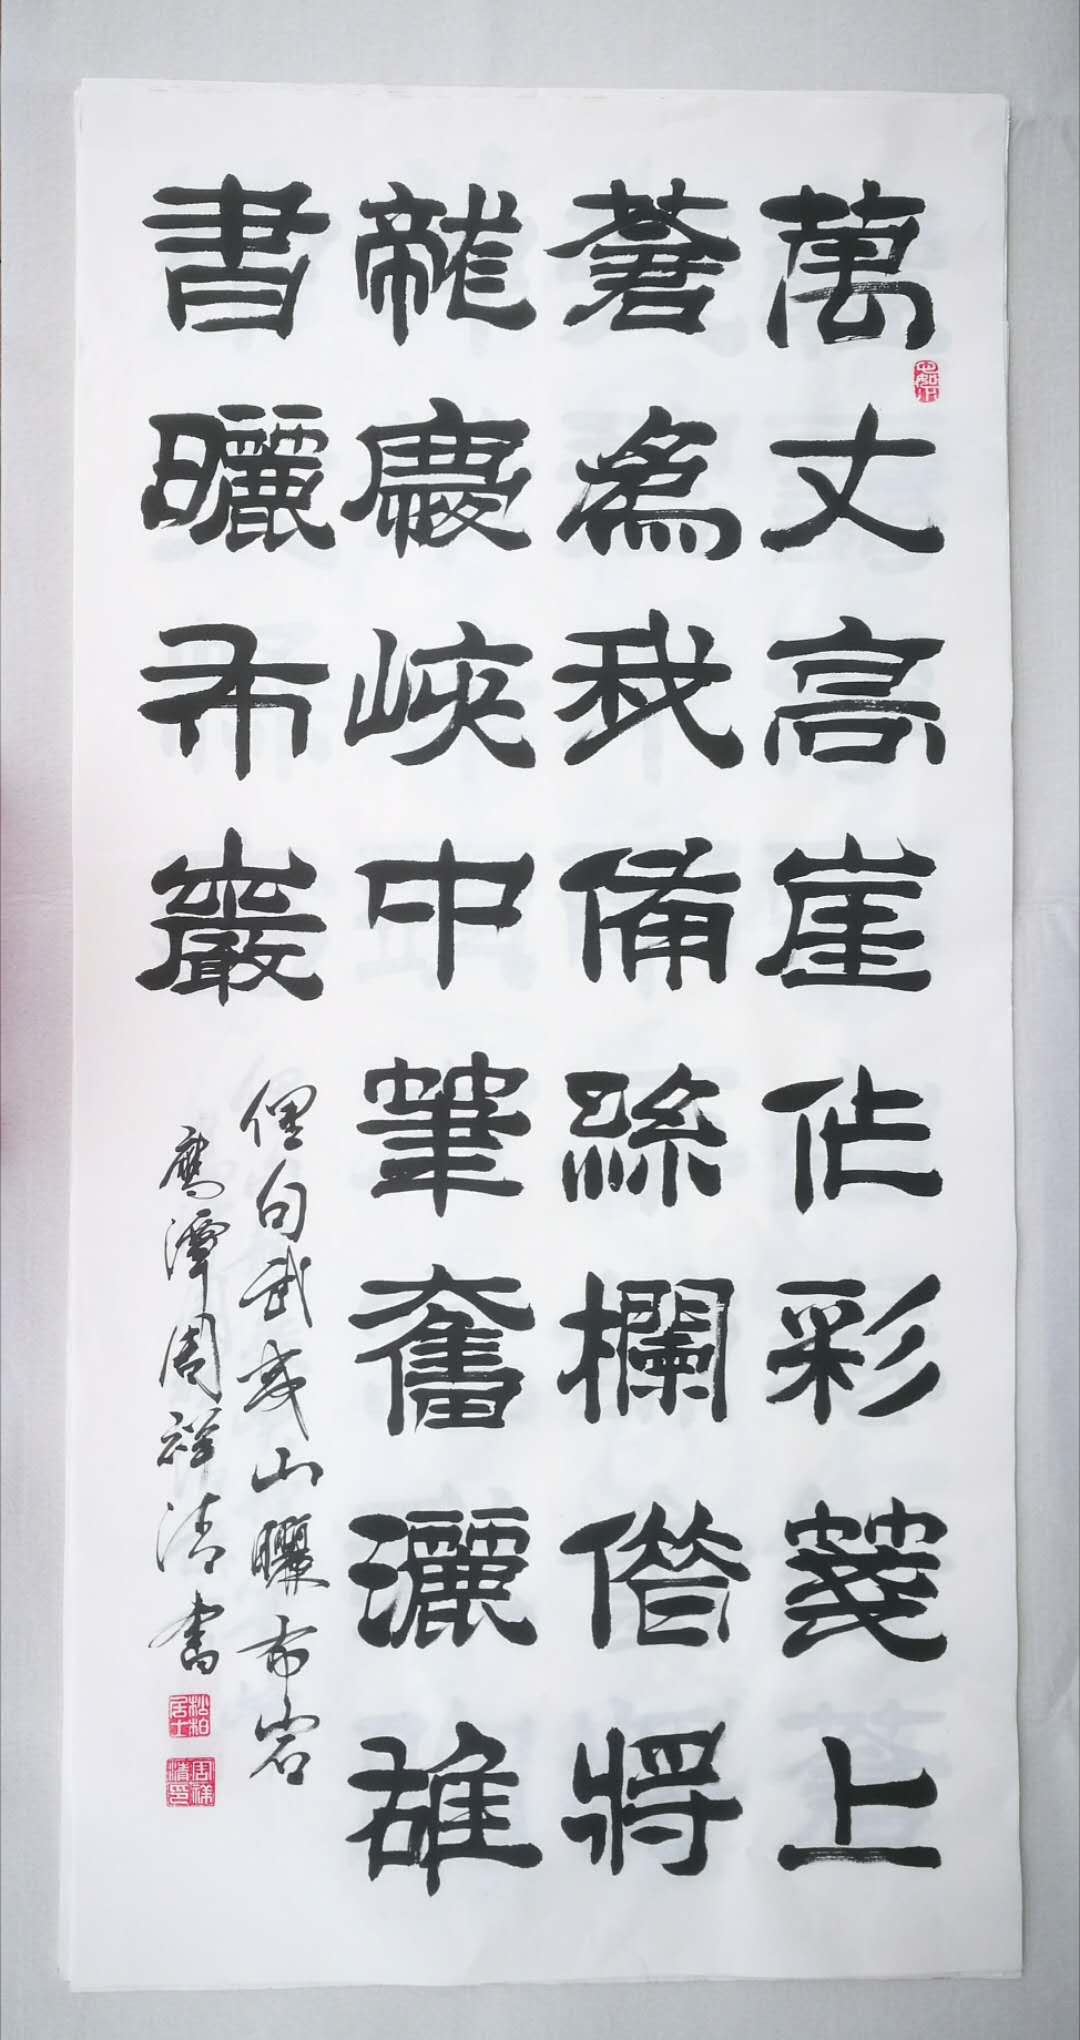 萬丈高崖作彩箋上
蒼為我備絲欄借將
龍慶峽中筆奮灑雄
書曬布巖
俚句武夷山曬布岩
鹰潭周祥清書
松柏居士
周祥清印